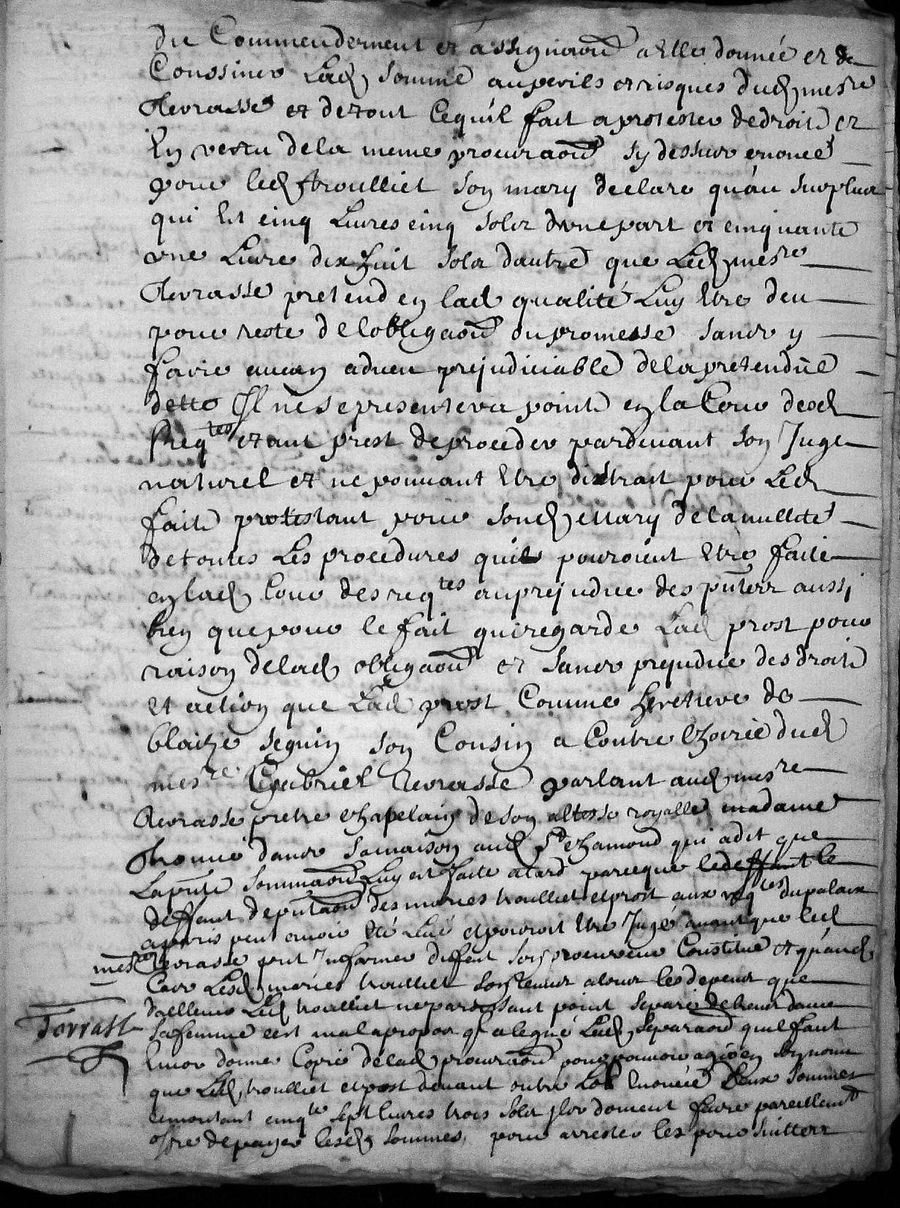 du Commendement et assignaon a elle donnée et de
Coussiner Lad somme auperils et risques dud mesre
Terrasse et detout Cequil fait aprotester dedroit et
En vertu dela meme procuraon sy dessus enoncé
pour led troulliet son mary declare quau surplus
qui Est cinq Livres cinq solz dune part et cinquante
une Livre dix huit solz dautre que Led mesre
Terrasse pretend en lad qualité Luy Etre deu
pour reste de lobligaon ou promesse sans y
faire aucun adveu prejudiciable dela pretendue
dette Il ne se presentera point en la Cour desd
Reqtes etant prest de proceder pardevant son Juge
naturel et ne pouvant Etre distrait pour Led
fait protestant pour sond Mary de la nullité
de toutes Les procedures quil pouroient Etre faite
en lad Cour des reqtes au prejudice des pnter aussi
bien que pour le fait qui regarde Lad prost pour
raison de lad obligaon et sans prejudice des droit
et action que Lad prost Comme heretiere de
blaize seguin son Cousin a Contre lhoirie dud
mesre Gabriel Terrasse parlant aud mesre
Terrasse pretre chapelain de son altesse royalle madame
trouvé dans samaison aud St chamond qui adit que
La pnte sommaon Luy est faite atard parceque le deffaut le
deffaut de pntaon des mariés troulliet et prost aux reqtes du palaix
aparis peut avoir été Levé et pouroit Etre Jugé avant que led
mesre Terrasse peut Informer diffent son procureur Constitué et quand
Car Lesd mariés troulliet sont tenus alour le depens que
dailleurs Led troulliet ne paroissant point separé de biens dame
sa femme cest mal apropos qua legué Lad separaon quil faut
Encor donne Copie de lad procuraon pour pouvoir agir en son nom
que Led troulliet et prost devant outre Les Enoncé deux sommes
remontant cinqte sept livres trois solz ilz doivent faire pareillemt
offre de payer lesd sommes, pour arrester les poursuitters
Terrasse